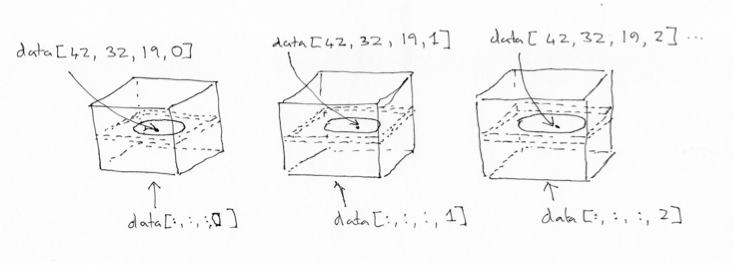 data[42, 32, 19, 0]
data[42, 32, 19, 1]
data[ 42, 32, 19, 2] ...
data[:, :, :, 0]
data[:, :, :, 1]
data[:, :, :, 2]